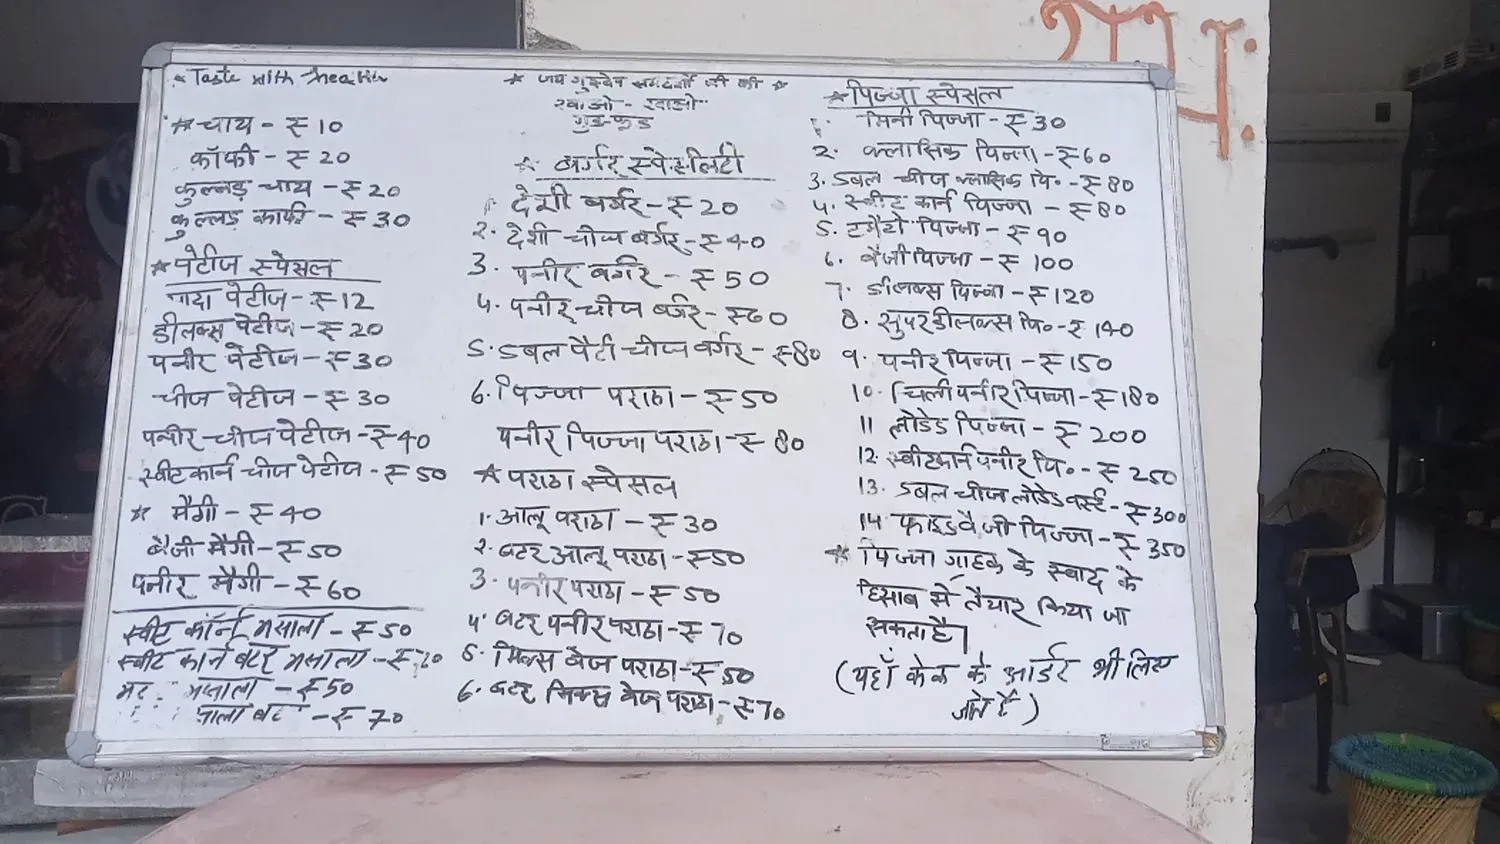 Taste with health
★ चाय - ₹ 10
कॉफी - ₹ 20
कुल्लड़ चाय - ₹ 20
कुल्लड़ कॉफी - ₹ 30
★ पेटीज स्पेसल
सादा पेटीज - ₹ 12
डीलक्स पेटीज - ₹ 20
पनीर पेटीज - ₹ 30
चीज पेटीज - ₹ 30
पनीर-चीज पेटीज - ₹ 40
स्वीटकार्न चीज पेटीज - ₹ 50
★ मैगी - ₹ 40
वैजी मैगी - ₹ 50
पनीर मैगी - ₹ 60
स्वीट कॉर्न मसाला - ₹ 50
स्वीट कार्न बटर मसाला - ₹
मसाला - ₹ 50
- ₹ 70
★ जय गुरुदेव की ★
खाओ -
गुड-फूड
★ बर्गर स्पेसलिटी
देशी बर्गर - ₹ 20
2. देशी चीज बर्गर - ₹ 40
3. पनीर बर्गर - ₹ 50
4. पनीर चीज बर्गर - ₹ 60
5. डबल पैटी चीज बर्गर - ₹ 80
6. पिज्जा पराठा - ₹ 50
पनीर पिज्जा पराठा - ₹ 80
★ पराठा स्पेसल
1. आलू पराठा - ₹ 30
2. बटर आलू पराठा - ₹ 50
3. पनीर पराठा - ₹ 50
4. बटर पनीर पराठा - ₹ 70
5. मिक्स वेज पराठा - ₹ 50
6. बटर मिक्स वेज पराठा - ₹ 70
★ पिज्जा स्पेसल
1. मिनी पिज्जा - ₹ 30
2. क्लासिक पिज्जा - ₹ 60
3. डबल चीज क्लासिक पि॰ - ₹ 80
4. स्वीट कार्न पिज्जा - ₹ 80
5. टमैटो पिज्जा - ₹ 90
6. वैजी पिज्जा - ₹ 100
7. डीलक्स पिज्जा - ₹ 120
8. सुपर डीलक्स पि॰ - ₹ 140
9. पनीर पिज्जा - ₹ 150
10. चिली पनीर पिज्जा - ₹ 180
11 लोडेड पिज्जा - ₹ 200
12. स्वीटकार्न पनीर पि॰ - ₹ 250
13. डबल चीज लोडेड - ₹ 300
14. वैजी पिज्जा - ₹ 350
★ पिज्जा ग्राहक के स्वाद के
हिसाब से तैयार किया जा
सकता है।
(यहाँ केक के आर्डर भी लिए
जाते हैं)